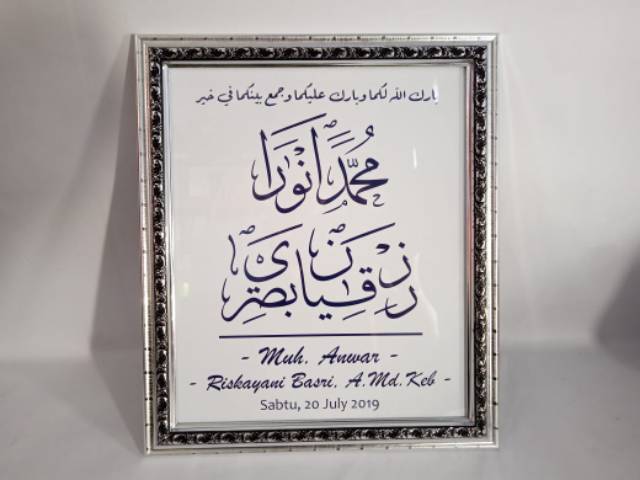 بارك الله لكما وبارك عليكما وجمع بينكما في خير
محمد انورا
بصري
- Muh. Anwar -
- Riskayani Basri, A.Md.Keb -
Sabtu, 20 July 2019